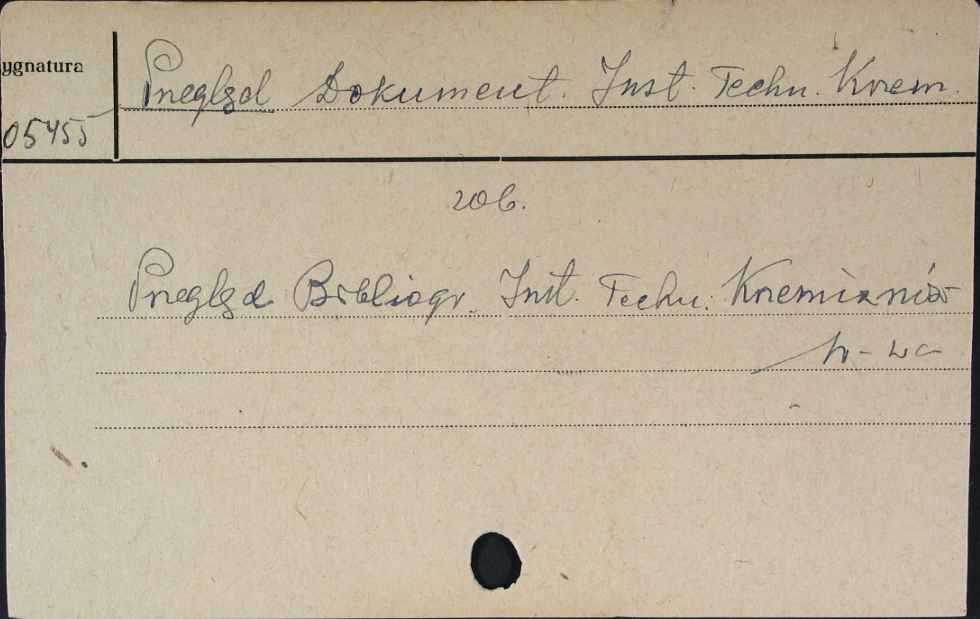 ygnatura
Przegląd Dokument. Inst. Techn. Krzem.
05455
zob.
Przegląd Bibliogr. Inst. Techn. Krzemianów
W-wa